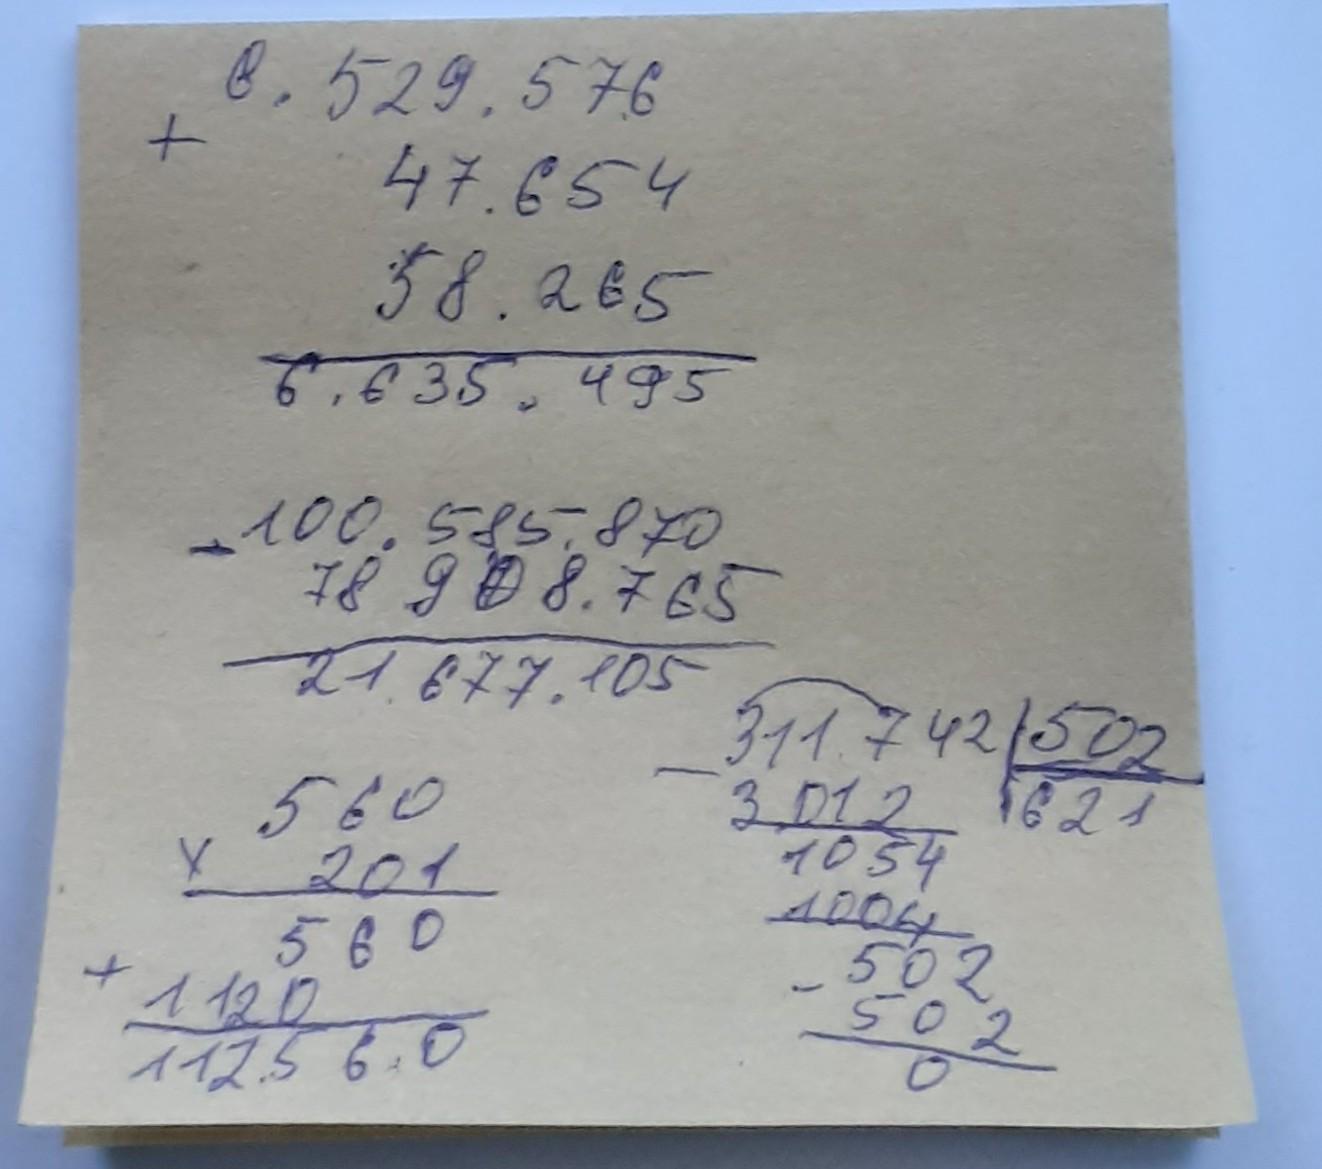 6.529.576
+
47.654
58.265
6.635.495
-100.585.870
78 908.765
21.677.105
560
x 201
560
+ 1120
112.560
311.742 | 502
- 3012 | 621
1054
1004
502
- 502
0